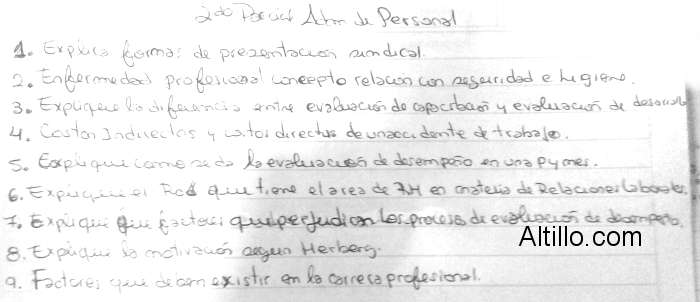 2do Parcial Adm de Personal
1. Explica formas de presentacion sindical.
2. Enfermedad profesional concepto relacion con seguridad e higiene.
3. Explique la diferencia entre evaluación de capacitación y evaluacion de desarrollo
4. Costos Indirectos y costos directos de un accidente de trabajo.
5. Explique como se da la evaluacion de desempeño en una pymes.
6. Explique el Rol que tiene el area de RH en materia de Relaciones laborales.
7. Explique que factores que perjudican los proceso de evaluación de desempeño.
8. Explique la motivacion segun Herberg.
9. Factores que deben existir en la carrera profesional.
Altillo.com